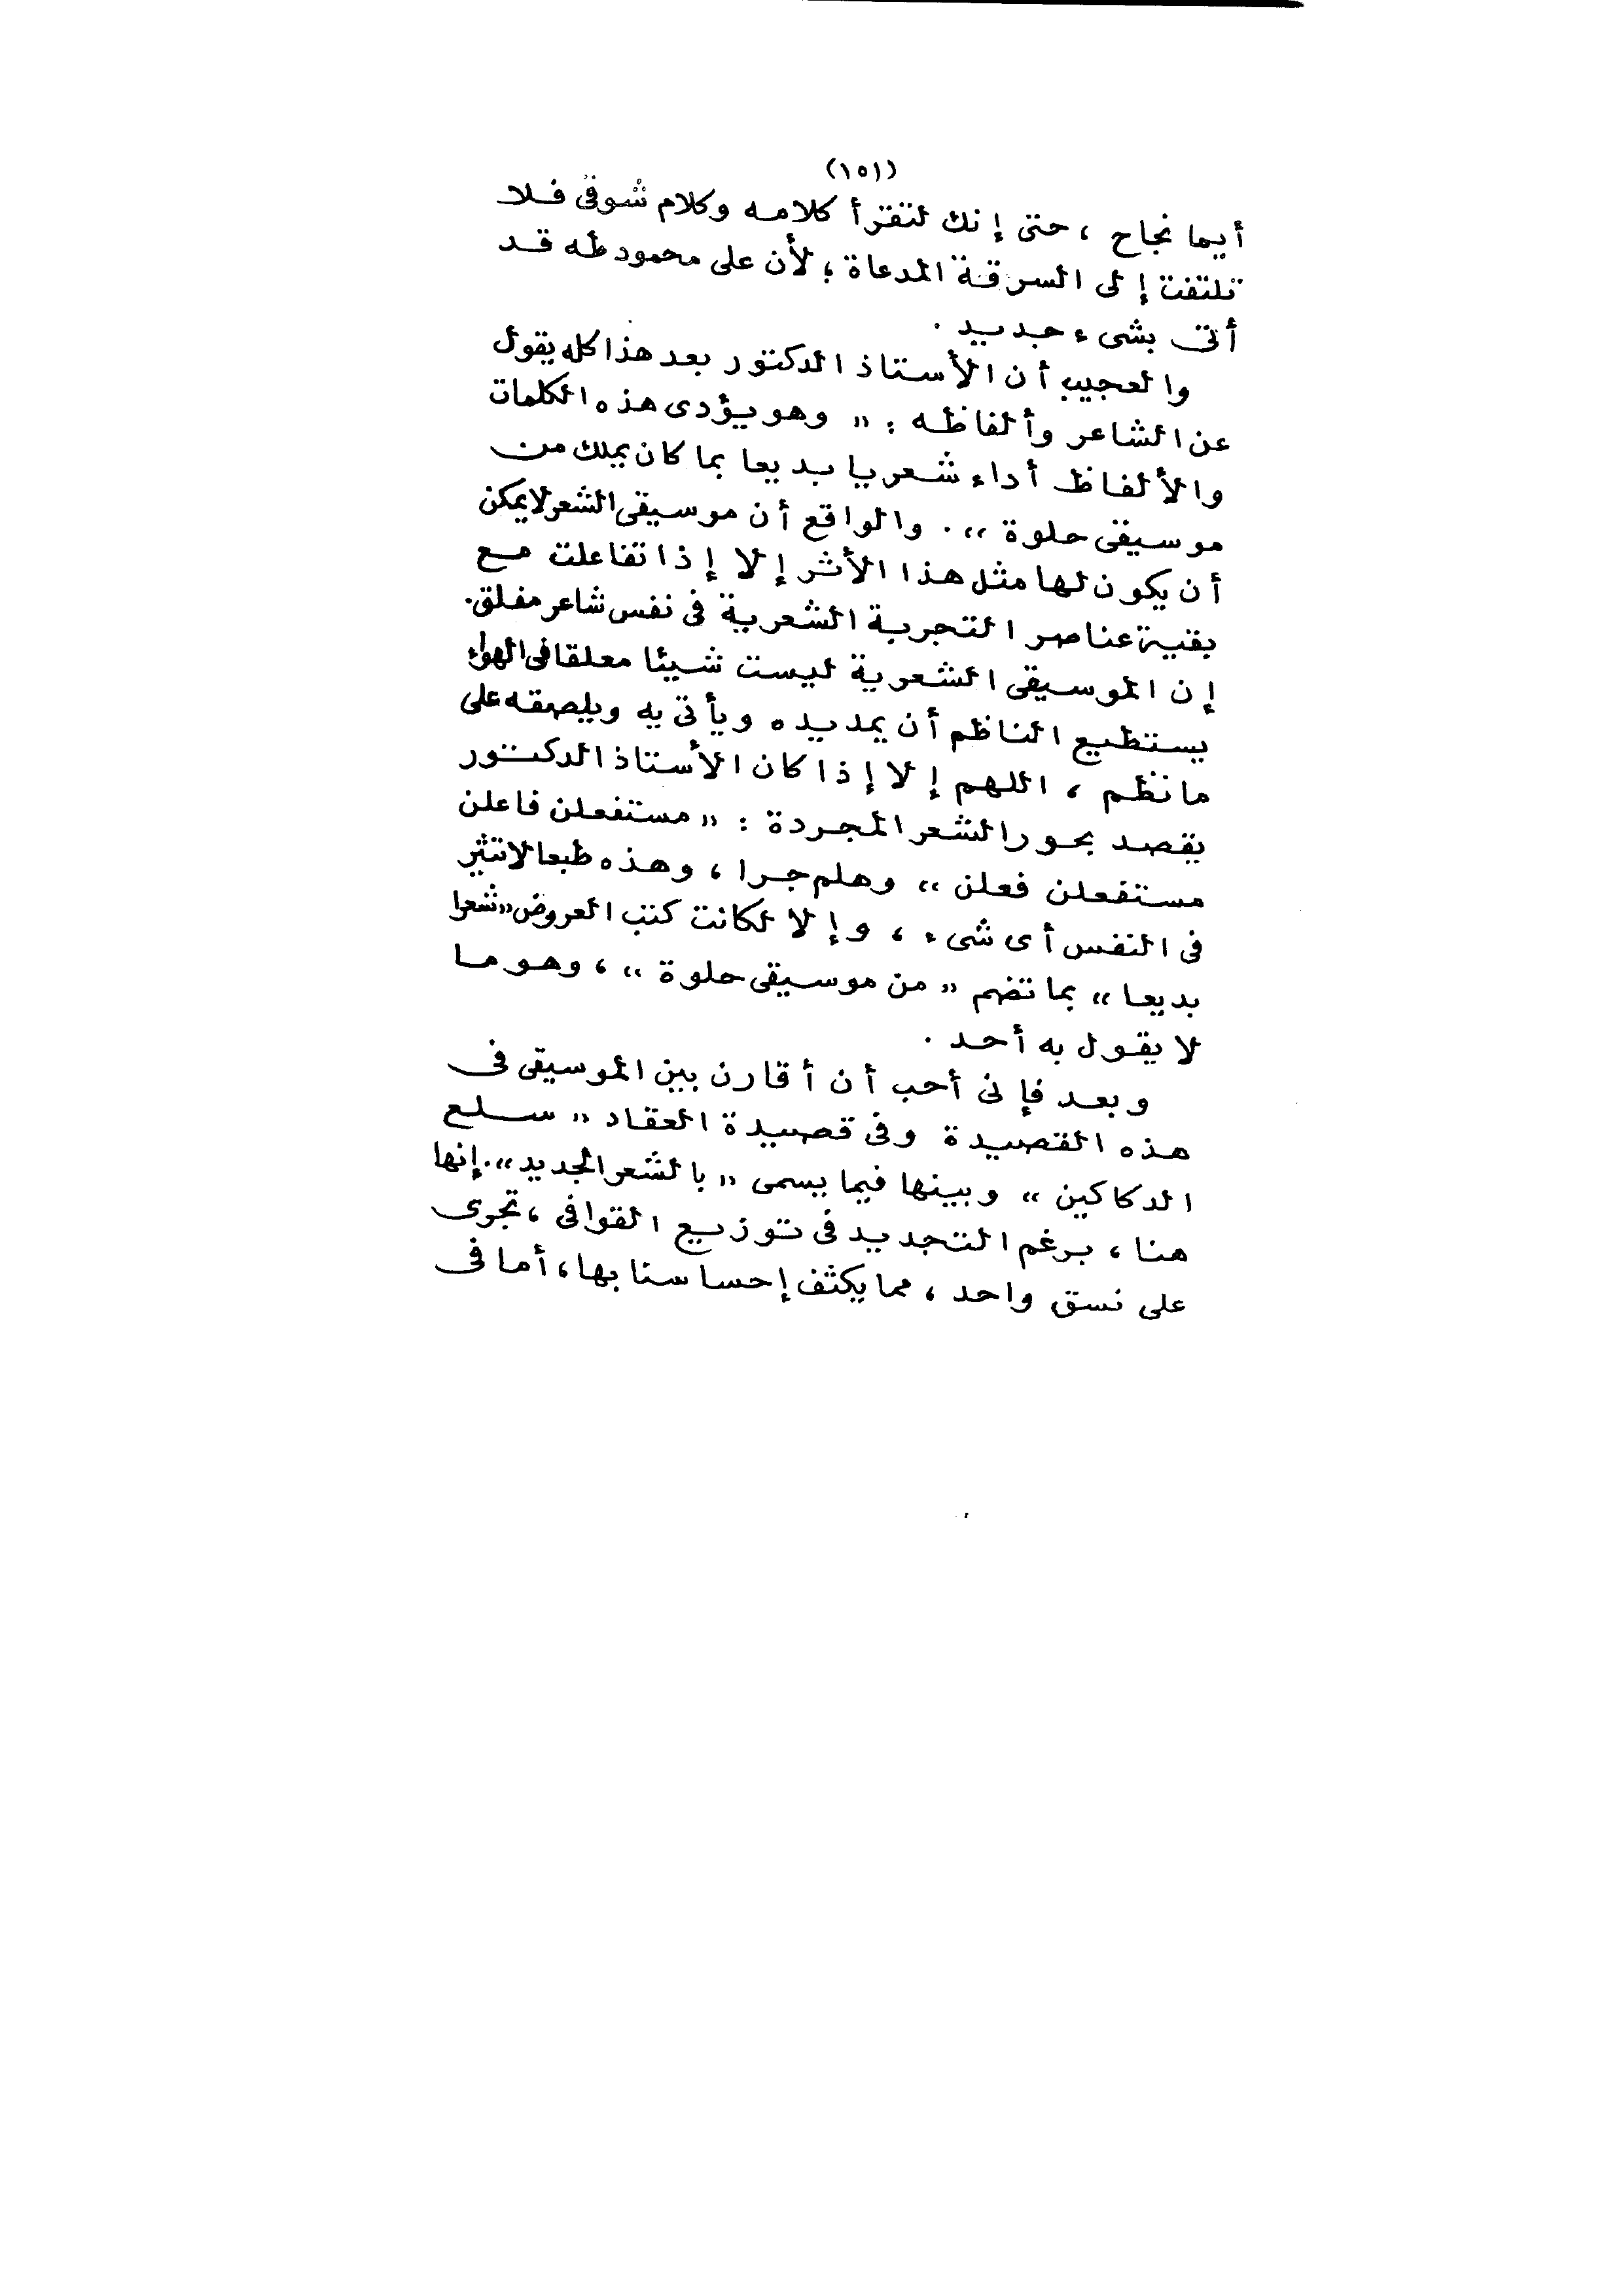 (١٥١)
أيما نجاح ، حتى إنك لتقرأ كلامه وكلام شوقى فلا
تلتفت إلى السرقة المدعاة ؛ لأن على محمود طه قد
أتى بشىء جديد .
والعجيب أن الأستاذ الدكتور بعد هذا كله يقول
عن الشاعر وألفاظه : " وهو يؤدى هذه الكلمات
والألفاظ أداء شعريا بديعا بما كان يملك من
موسيقى حلوة " . والواقع أن موسيقى الشعر لا يمكن
أن يكون لها مثل هذا الأثر إلا إذا تفاعلت مع
بقية عناصر التجربة الشعرية فى نفس شاعر مفلق .
إن الموسيقى الشعرية ليست شيئا معلقا فى الهواء
يستطيع الناظم أن يمد يده ويأتى به ويلصقه على
ما نظم ، اللهم إلا إذا كان الأستاذ الدكتور
يقصد بحور الشعر المجردة : " مستفعلن فاعلن
مستفعلن فعلن " وهلم جرا ، وهذه طبعا لا تثير
فى النفس أى شىء ، وإلا لكانت كتب العروض " شعرا
بديعا " بما تضم " من موسيقى حلوة " ، وهو ما
لا يقول به أحد .
وبعد فإنى أحب أن أقارن بين الموسيقى فى
هذه القصيدة وفى قصيدة العقاد " سلع
الدكاكين " وبينها فيما يسمى " بالشعر الجديد " . إنها
هنا ، برغم التجديد فى توزيع القوافى ، تجرى
على نسق واحد ، مما يكثف إحساسنا بها ، أما فى